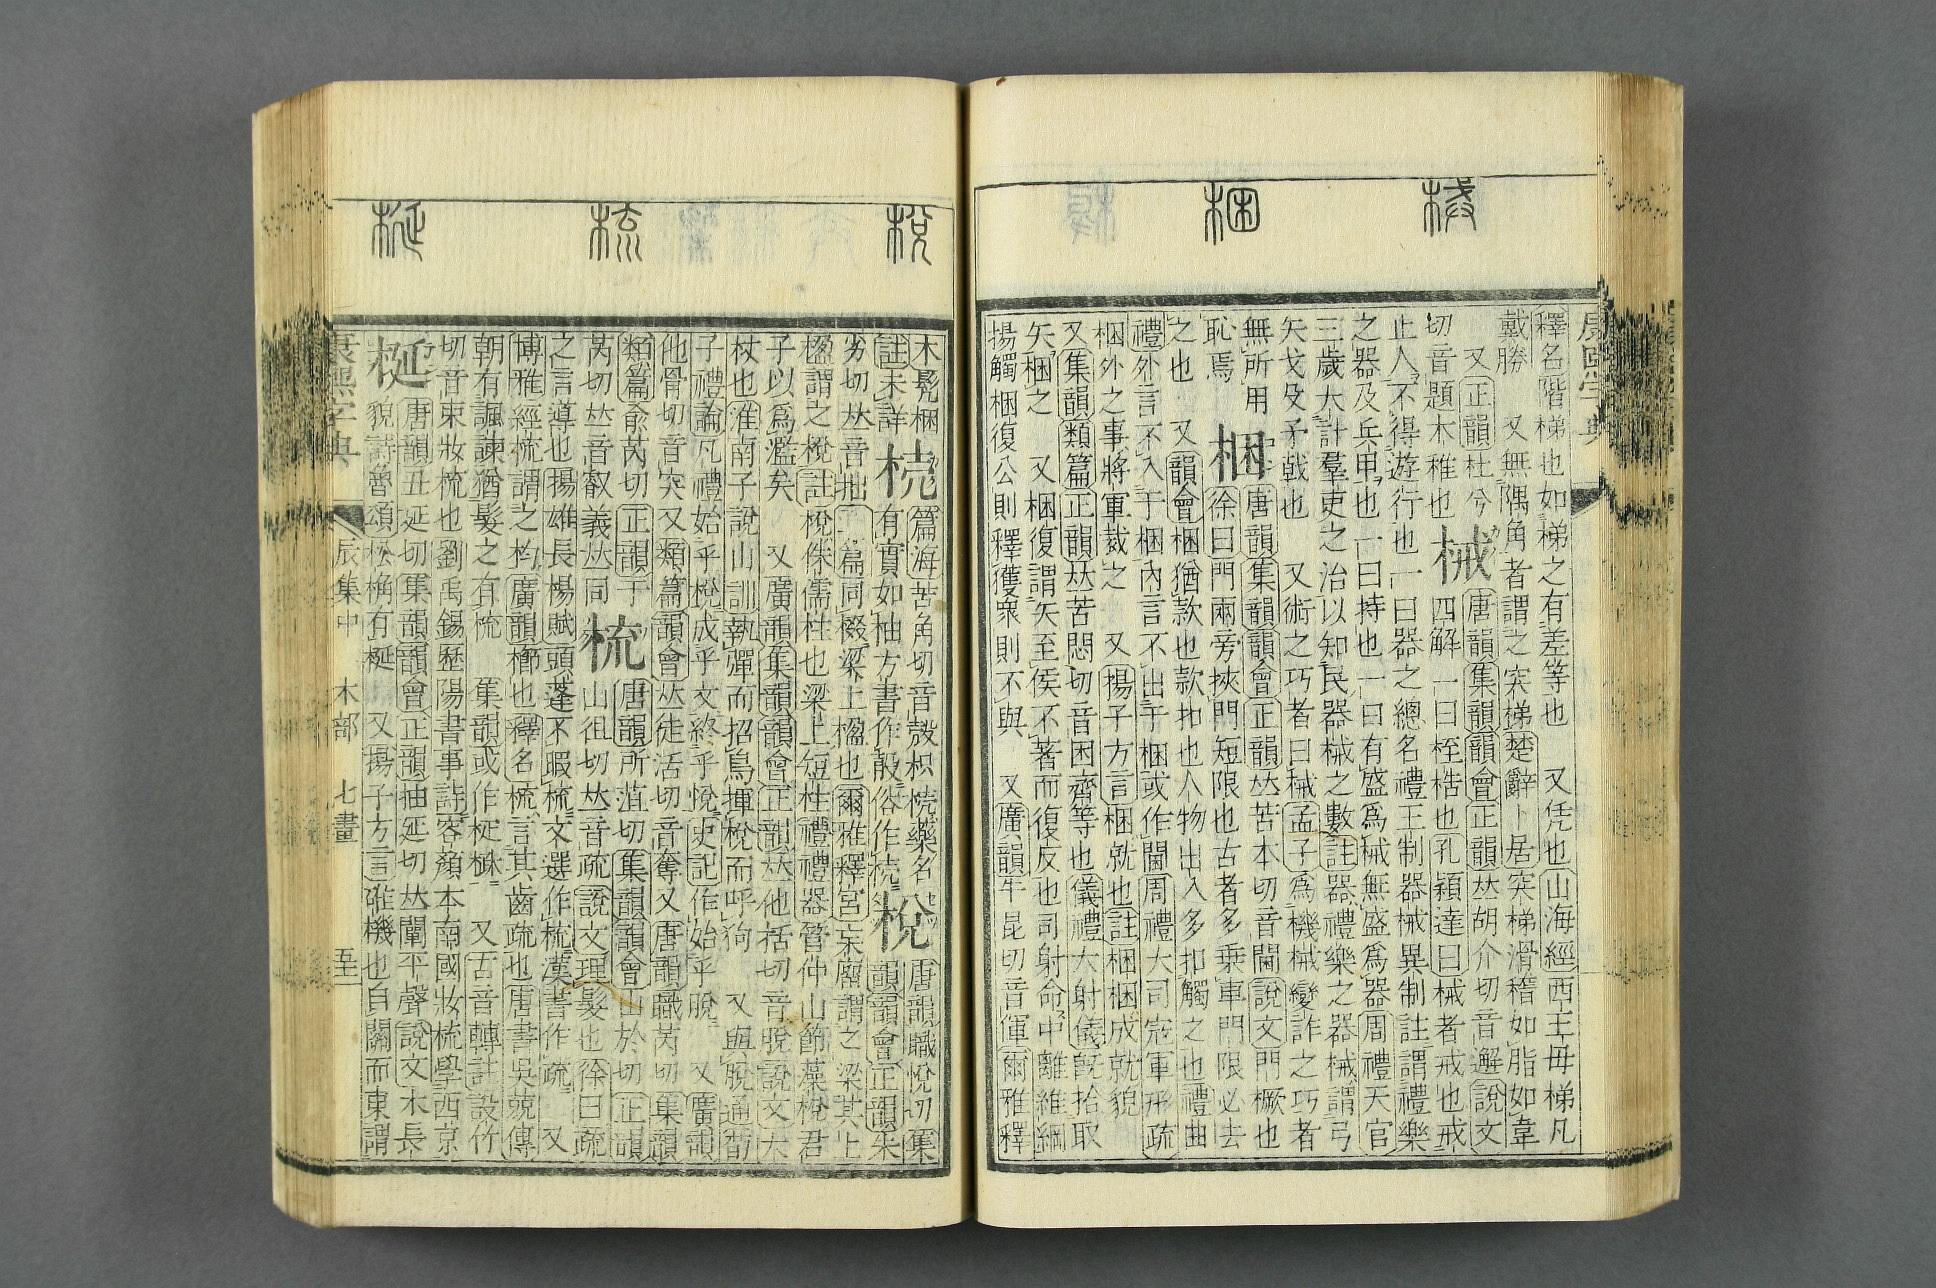 棧
梱
康熙字典
釋名階梯也如梯之有差等也　又凭也山海經西王母梯凡
戴勝　又無隅角者謂之突梯楚辭卜居突梯滑稽如脂如韋
又正韻杜兮
切音題木稚也
械
唐韻集韻韻會正韻𠀤胡介切音邂說文
四解一曰桎梏也孔穎達曰械者戒也戒
止人不得遊行也一曰器之總名禮王制器械異制註謂禮樂
之器及兵甲也一曰持也一曰有盛爲械無盛爲器周禮天官
三歲大計羣吏之治以知民器械之數註器禮樂之器械謂弓
矢戈殳矛戟也　又術之巧者曰械孟子爲機械變詐之巧者
無所用
恥焉
梱
唐韻集韻韻會正韻𠀤苦本切音閫說文門橛也
徐曰門兩旁挾門短限也古者多乗車門限必去
之也　又韻會梱猶款也款扣也人物出入多扣觸之也禮曲
禮外言不入于梱內言不出于梱或作閫周禮大司寇軍形疏
梱外之事將軍裁之　又揚子方言梱就也註梱梱成就貌
又集韻類篇正韻𠀤苦悶切音困齊等也儀禮大射儀旣拾取
矢梱之　又梱復謂矢至侯不著而復反也司射命中離維綱
揚觸梱復公則釋獲衆則不與　又廣韻牛昆切音僤爾雅釋
梲
梳
梴
木髡梱
註未詳
𣒆
篇海苦角切音殼枳𣒆藥名
有實如柚方書作殻俗作𣒆
梲
唐韻職悅切集
韻韻會正韻朱
劣切𠀤音拙玉篇同棳梁上楹也爾雅釋宮杗廇謂之梁其上
楹謂之梲註梲侏儒柱也梁上短柱禮禮器管仲山節藻梲君
子以爲濫矣　又廣韻集韻韻會正韻𠀤他括切音脫說文木
杖也淮南子說山訓執彈而招鳥揮梲而呼狗　又與脫通荀
子禮論凡禮始乎梲成乎文終乎悅史記作始乎脫　又廣韻
他骨切音突又類篇韻會𠀤徒活切音奪又唐韻職芮切集韻
類篇兪芮切正韻于
芮切𠀤音叡義𠀤同
梳
唐韻所葅切集韻韻會山於切正韻
山徂切𠀤音疏說文理髮也徐曰疏
之言導也揚雄長楊賦頭蓬不暇梳文選作梳漢書作疏　又
博雅經梳謂之枃廣韻櫛也釋名梳言其齒疏也唐書吳兢傳
朝有諷諫猶髮之有梳　集韻或作𣐈𣓌　又古音轉註設竹
切音束妝梳也劉禹錫歷陽書事詩容顏本南國妝梳學西京
梴
唐韻丑延切集韻韻會正韻抽延切𠀤闡平聲說文木長
貌詩魯頌松桷有梴　又揚子方言碓機也自關而東謂
康熙字典　辰集中　木部　七畫　五十一